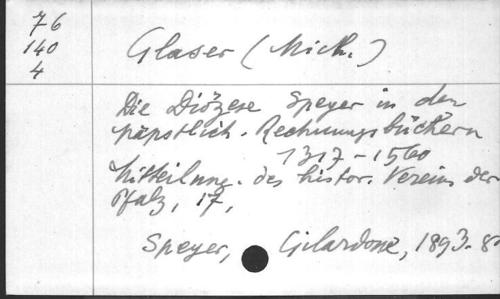 76
140
4
Glaser (Mich.)
Die Diözese Speyer in den
päpstlich. Rechnungsbüchern
1317-1560
Mitteilung. des histor. Vereins der
Pfalz, 17,
Speyer, Gilardone, 1893. 8°